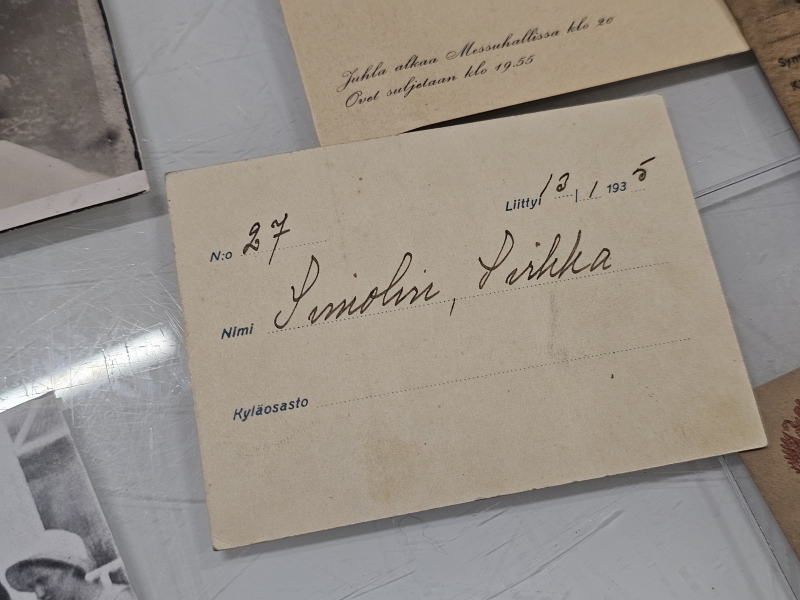 Juhla alkaa Messuhallissa klo 20
Ovet suljetaan klo 19.55
N:o 27
Liittyi 13 / 1 1935
Nimi Simolin, Sirkka
Kyläosasto